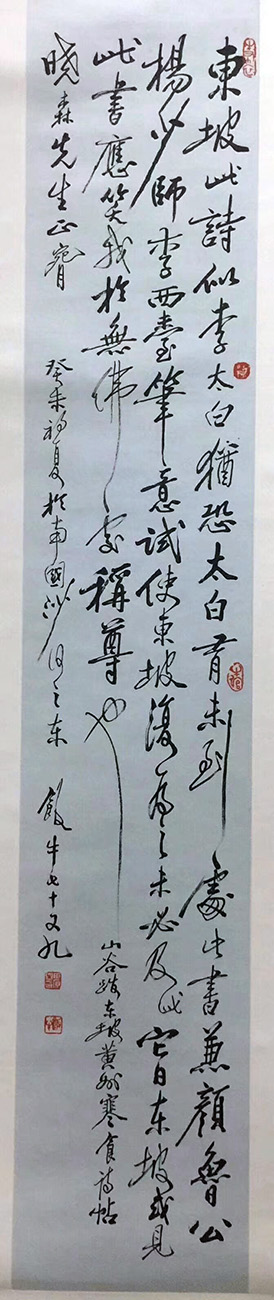 東坡此詩似李太白猶恐太白有未到處此書兼顏魯公
楊少師李西臺筆意試使東坡復為之未必及此它日東坡或見
此書應笑我於無佛處稱尊也
山谷跋东坡黄州寒食诗帖
晓森先生正睿
癸未初夏於南國沙河之东
飯牛七十又九